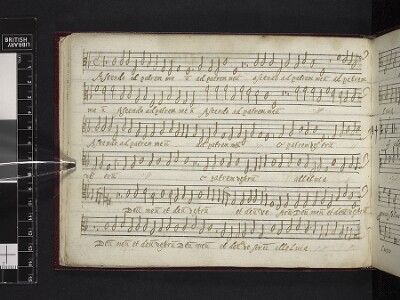 BRITISH
LIBRARY
Ascendo ad patrem me ū ad patrem meū ascendo ad patrem meū ad patrem
me ū Ascendo ad patrem meū Ascendo ad patrem meū
Ascendo ad patrem meū ad patrem meū et patrem vestrū
et patrem vestrū alleluia
Deū meū et deū vestrū et deū ve strū Deū meū et deū vestrū
Deū meū et deū vestrū Deū meū et deū ve strū alleluia